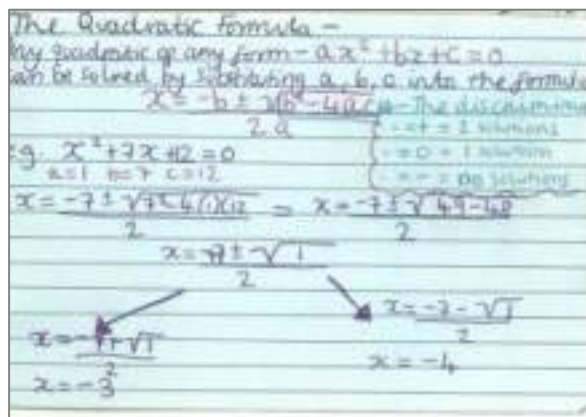 The Quadratic Formula -
Any quadratic of any form - ax² + bx + c = 0
can be solved by substituting a, b, c into the formula
x = -b ± √(b² - 4ac) / 2a - The discriminant
- = + = 2 solutions
e.g. x² + 7x + 12 = 0
- = 0 = 1 solution
a=1 b=7 c=12
- = - = no solutions
x = -7 ± √7² - 4(1)(12) / 2 = x = -7 ± √49 - 48 / 2
x = -7 ± √1 / 2
x = -7 + √1 / 2
x = -7 - √1 / 2
x = -3
x = -4